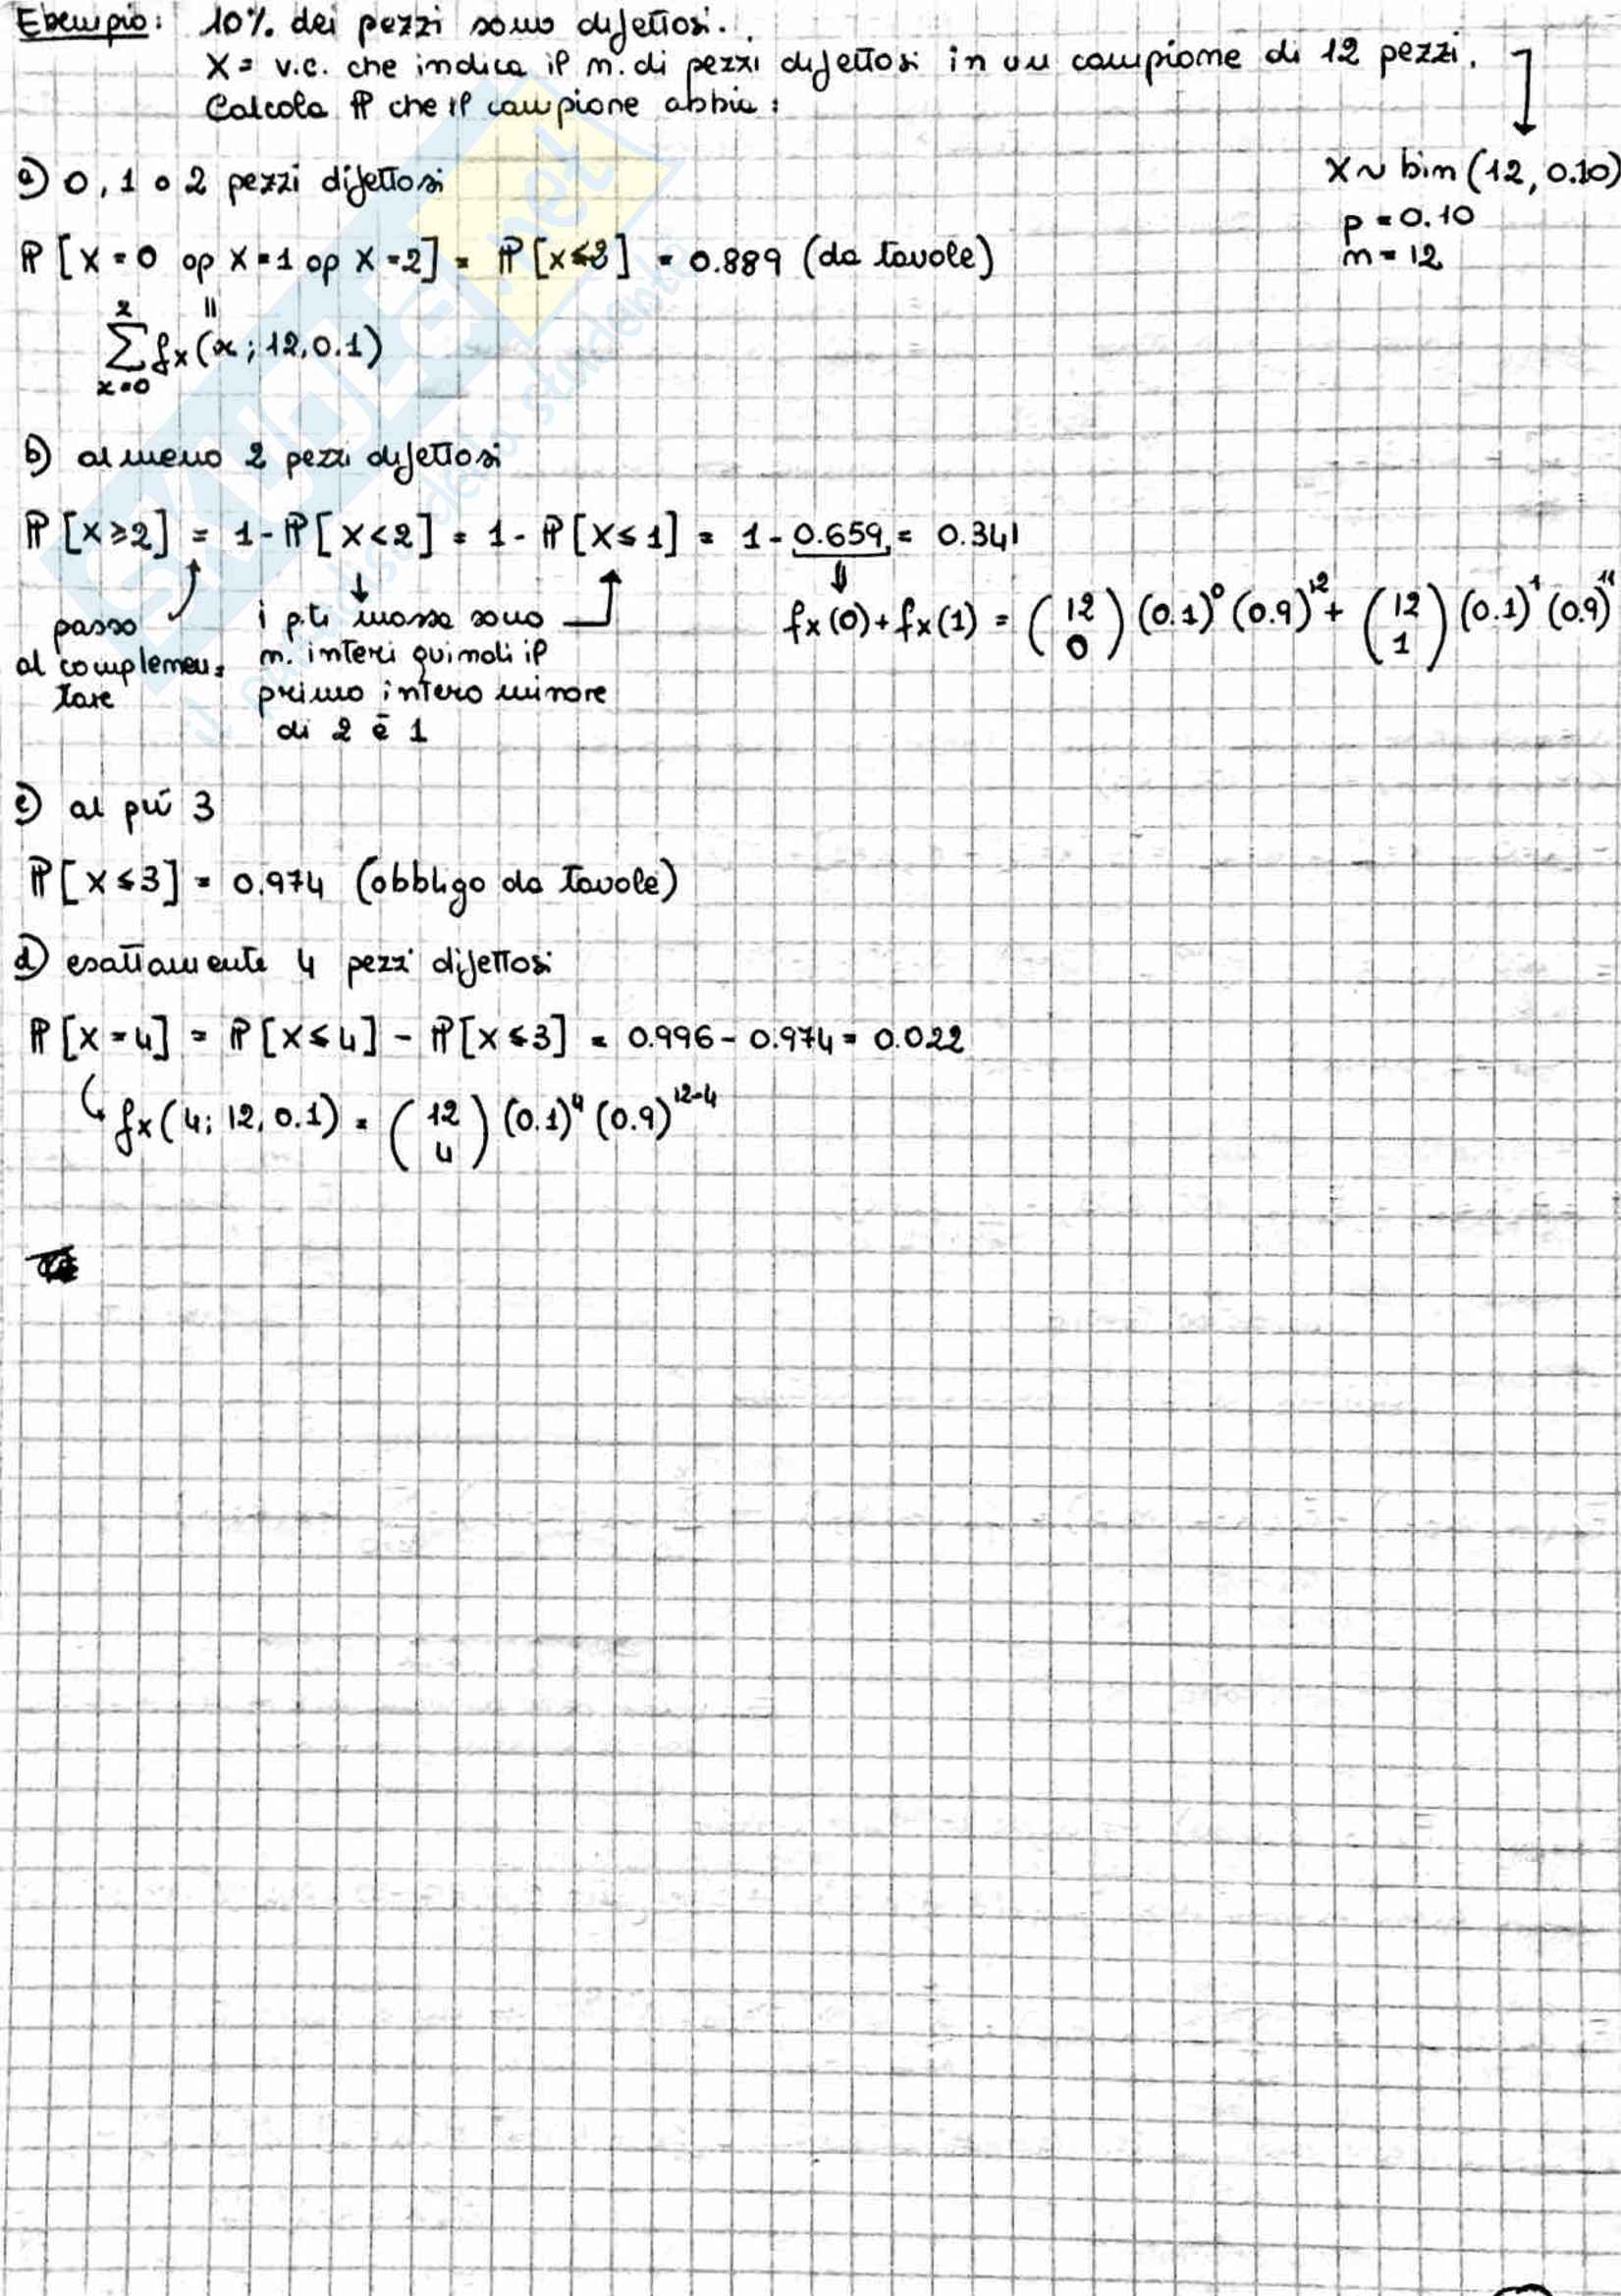 Esempio: 10% dei pezzi sono difettosi.
X = v.c. che indica il n. di pezzi difettosi in un campione di 12 pezzi.
Calcola ℙ che il campione abbia:
X ~ bin (12, 0.10)
p = 0.10
n = 12
a) 0, 1 o 2 pezzi difettosi
ℙ [X = 0 op X = 1 op X = 2] = ℙ [X ≤ 2] = 0.889 (da tavole)
=
∑_{x=0}^{2} fx (x; 12, 0.1)
b) almeno 2 pezzi difettosi
ℙ [X ≥ 2] = 1 - ℙ [X < 2] = 1 - ℙ [X ≤ 1] = 1 - 0.659 = 0.341
fx (0) + fx (1) = (12 0) (0.1)^0 (0.9)^12 + (12 1) (0.1)^1 (0.9)^11
passo
al complemen=
tare
i p.ti massa sono
n. interi quindi il
primo intero minore
di 2 è 1
c) al più 3
ℙ [X ≤ 3] = 0.974 (obbligo da tavole)
d) esattamente 4 pezzi difettosi
ℙ [X = 4] = ℙ [X ≤ 4] - ℙ [X ≤ 3] = 0.996 - 0.974 = 0.022
fx (4; 12, 0.1) = (12 4) (0.1)^4 (0.9)^12-4
SKUOLA.net